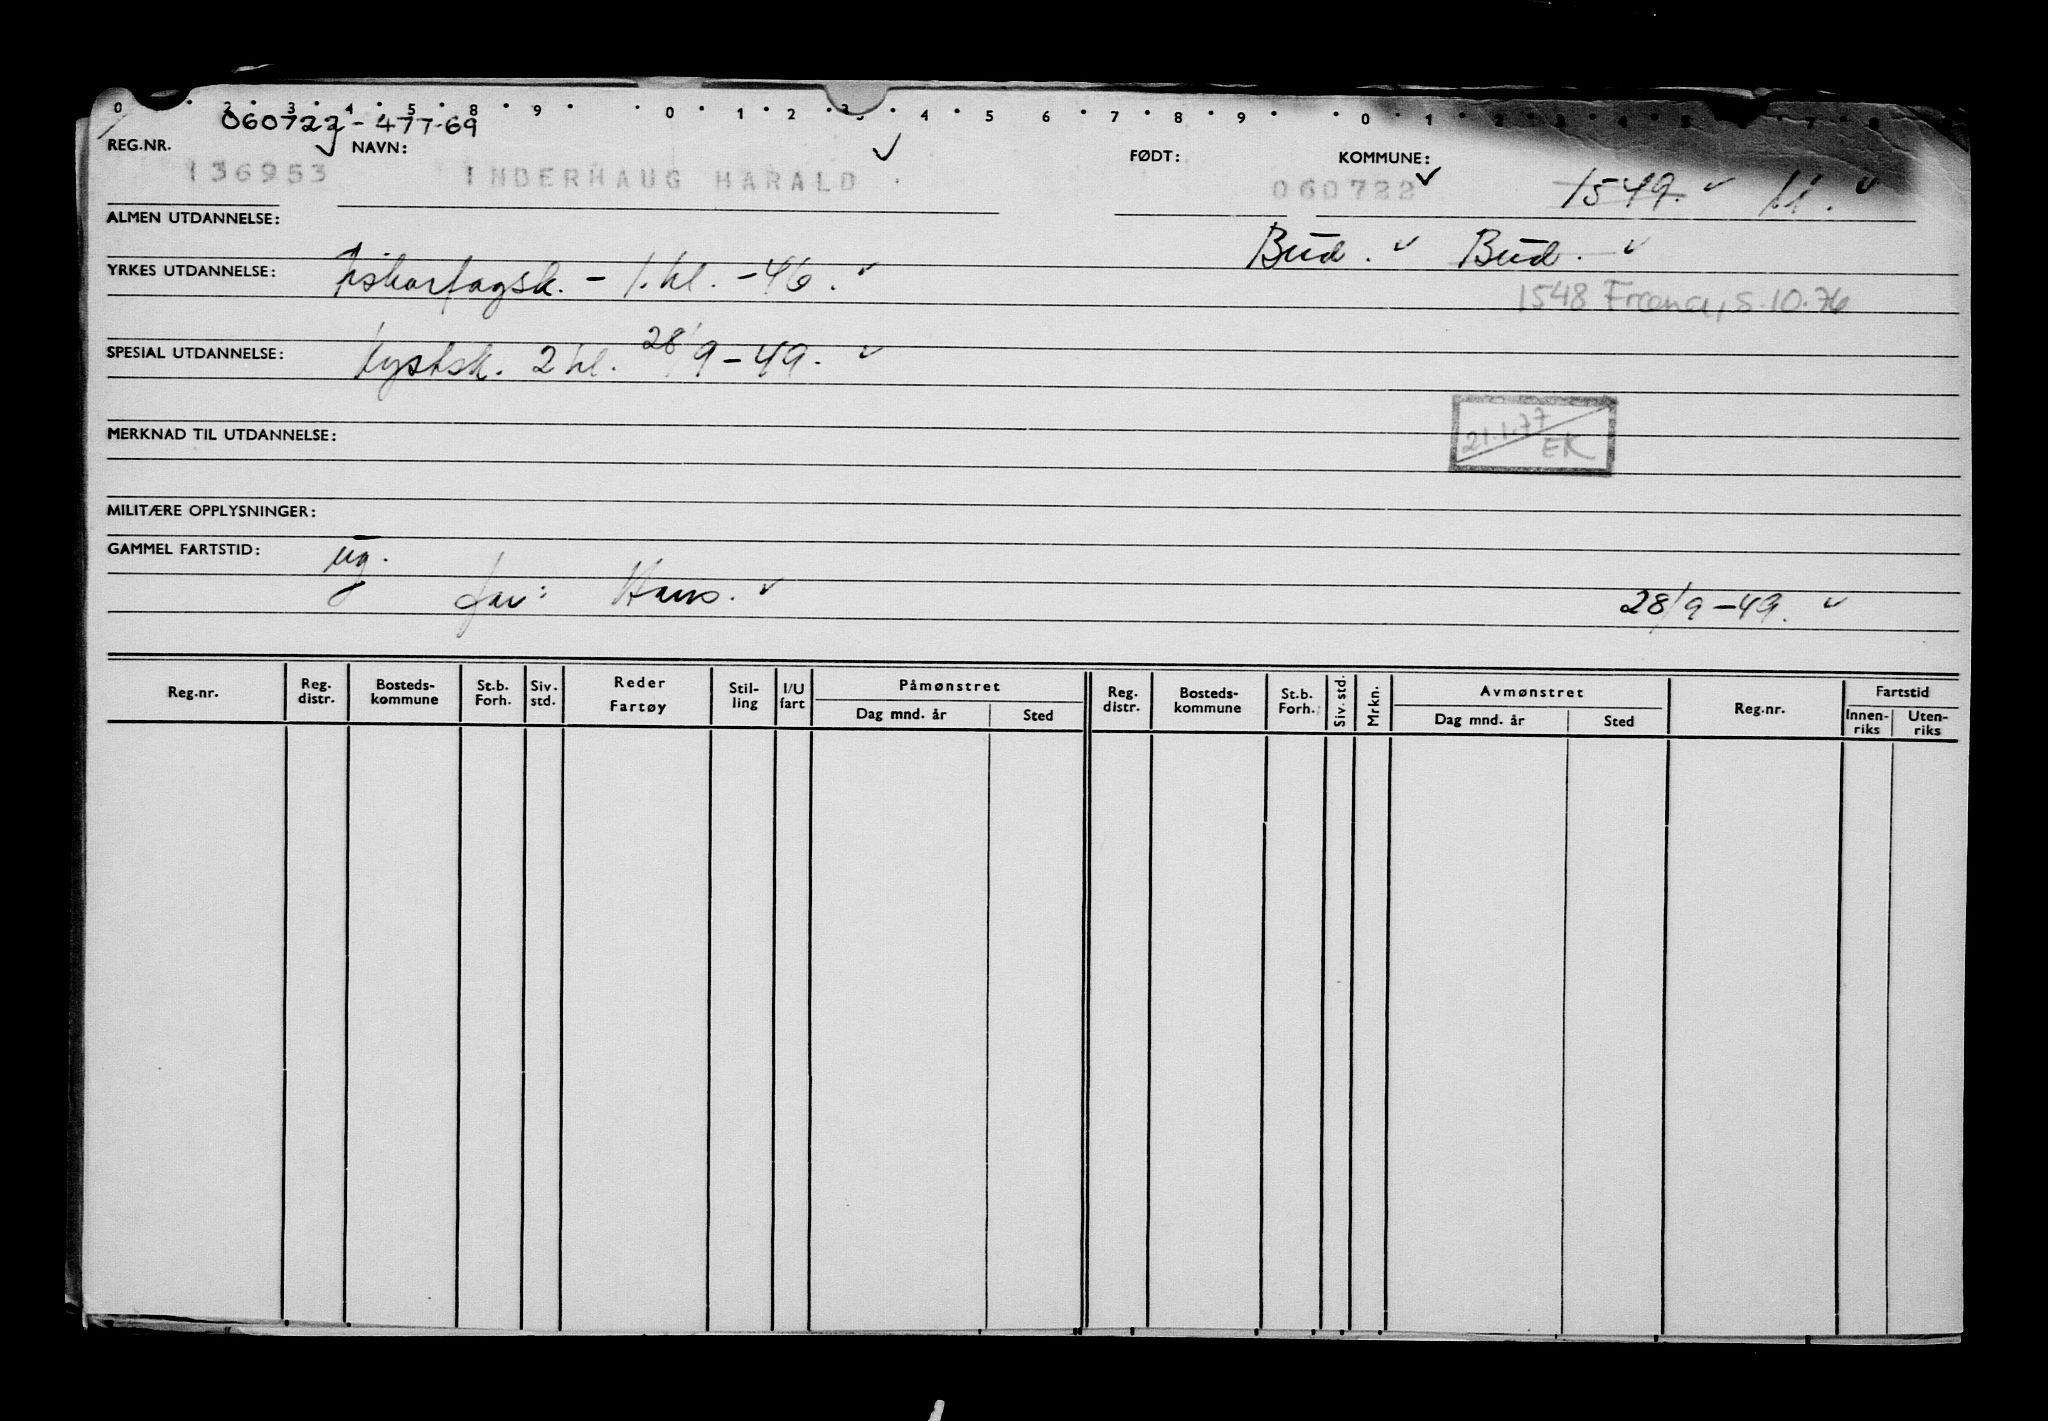 0 2 3 4 5 8 9 0 1 2 3 4 5 6 7 8 9 0 1 2 3 4 5 7 8
060722-477-69
REG.NR. NAVN: FØDT: KOMMUNE:
136953 INDERHAUG HARALD 060722 1549.
ALMEN UTDANNELSE:
Bud. Bud.
YRKES UTDANNELSE: Fiskarfagsk. - 1.kl. -46.
1548 Fræna, 5.10.76
SPESIAL UTDANNELSE: kystsk. 2 kl. 28/9-49.
21.1.77
EK
MERKNAD TIL UTDANNELSE:
MILITÆRE OPPLYSNINGER:
GAMMEL FARTSTID: ug.
far: Hans. 28/9-49.
Reg.nr. Reg. distr. Bosteds- kommune St.b. Forh. Siv. std. Reder Fartøy Stil- ling I/U fart Påmønstret Dag mnd. år Sted Reg. distr. Bosteds- kommune St.b. Forh. Siv. std. Mrkn. Avmønstret Dag mnd. år Sted Reg.nr. Fartstid Innen- riks Uten- riks